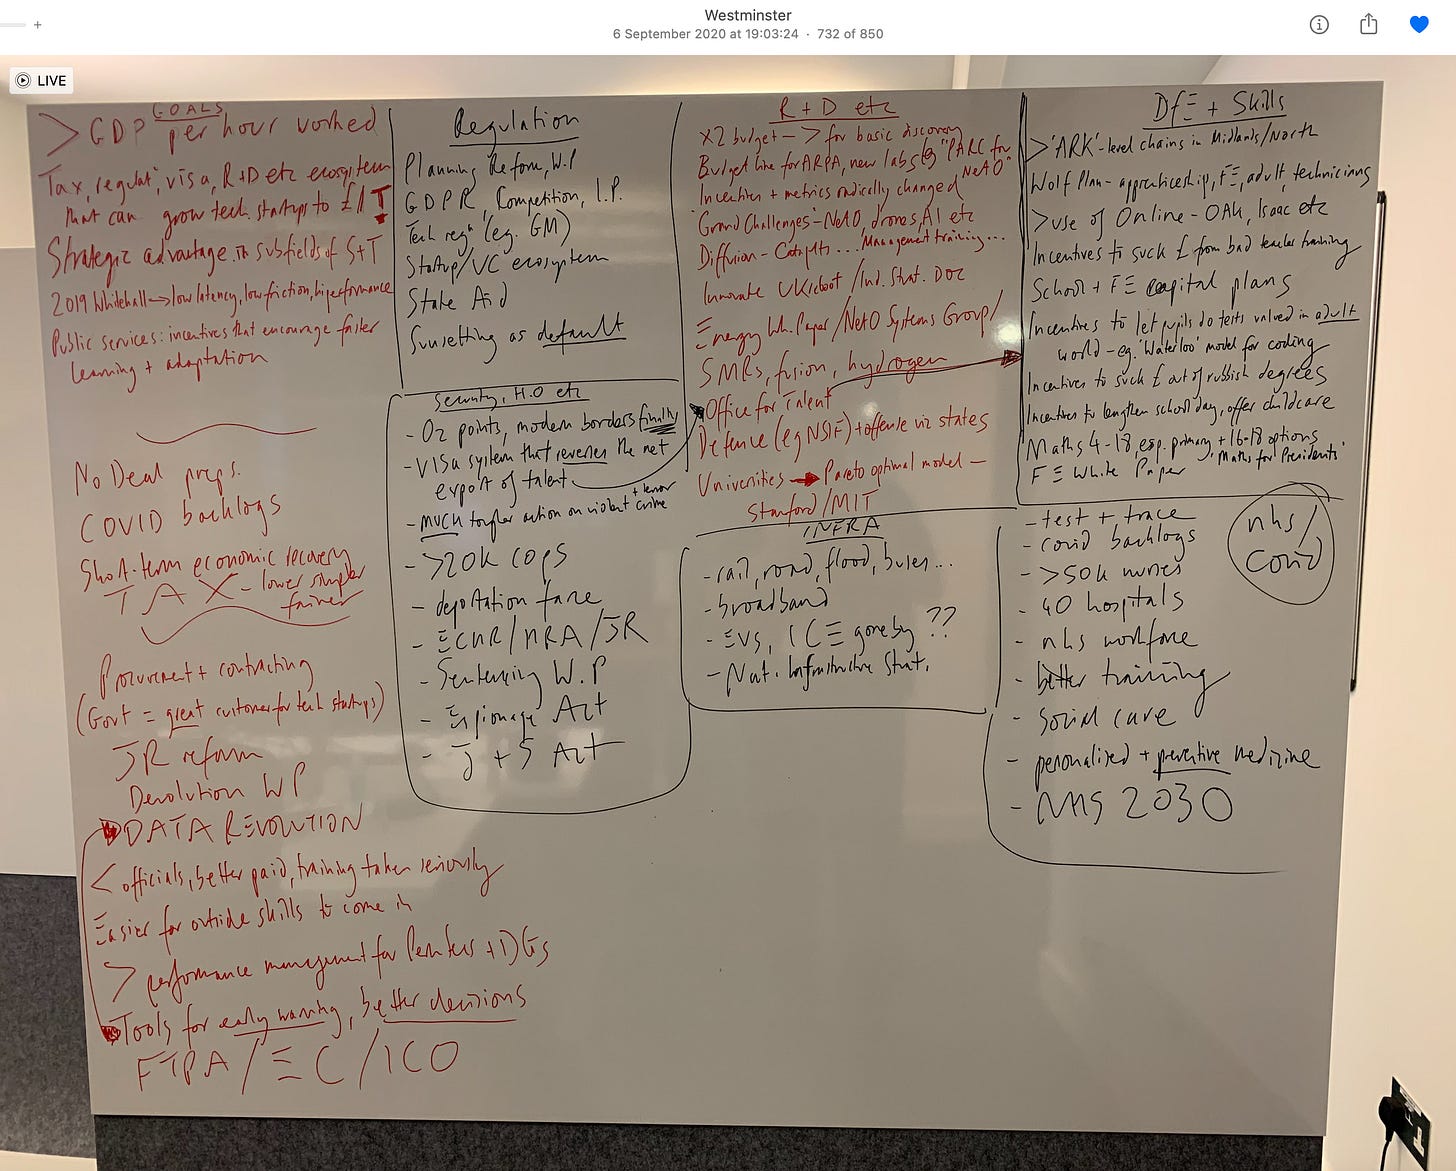 Westminster
6 September 2020 at 19:03:24 · 732 of 850
LIVE
GOALS
> GDP per hour worked
Tax, regulat', visa, R+D etc ecosystem
that can grow tech startups to £1T
Strategic advantage in subfields of S+T
2019 Whitehall → low latency, low friction, hi performance
Public services: incentives that encourage faster
learning + adaptation
No Deal preps.
COVID backlogs
Short-term economic recovery
TAX - lower simpler
fairer
Procurement + contracting
(Govt = great customer for tech startups)
JR reform
Devolution WP
DATA REVOLUTION
< officials, better paid, training taken seriously
Easier for outside skills to come in
> performance management for PermSecs + DGs
Tools for early warning, better decisions
FTPA / EC / ICO
Regulation
Planning Reform, W.P
GDPR, Competition, I.P.
Tech reg' (eg. GM)
Startup/VC ecosystem
State Aid
Sunsetting as default
Security, H.O etc
- Oz points, modern borders finally
- Visa system that reverses the net
export of talent
- MUCH tougher action on violent + terror crime
- >20K cops
- deportation farce
- ECHR/HRA/JR
- Sentencing W.P
- Espionage Act
- J + S Act
R+D etc
X2 budget — > for basic discovery
Budget line for ARPA, new labs eg "PARC for NetO"
Incentives + metrics radically changed
'Grand Challenges' - NetO, drones, AI etc
Diffusion - Catapults ... Management training ...
Innovate UK reboot / Ind. Strat. DOC
Energy Wh. Paper / NetO Systems Group /
SMRs, fusion, hydrogen
Office for Talent
Defence (eg NSIF) + offense viz states
Universities → Pareto optimal model —
Stanford/MIT
INFRA
- rail, road, flood, buses...
- broadband
- EVs, ICE gone by ??
- Nat. Infrastructure Strat.
DfE + Skills
> 'ARK'-level chains in Midlands/North
Wolf Plan - apprenticeship, FE, adult, technicians
> use of Online - OAK, Isaac etc
Incentives to suck £ from bad teacher training
School + FE capital plans
Incentives to let pupils do tests valued in adult
world - eg. 'Waterloo' model for coding
Incentives to suck £ out of rubbish degrees
Incentives to lengthen school day, offer childcare
Maths 4-18, esp. primary + 16-18 options
'Maths for Presidents'
FE White Paper
nhs/
Covid
- test + trace
- covid backlogs
- >50k nurses
- 40 hospitals
- nhs workforce
- better training
- social care
- personalised + preventive medicine
- NHS 2030